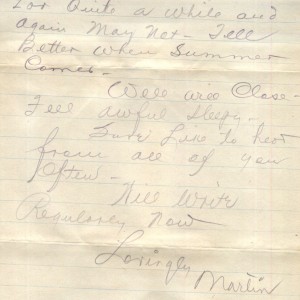 For Quite a while and
Again May Not - Tell
Better When Summer
Comes -
Well will Close -
Feel awful Sleepy -
Sure Like to hear
from all of you
Often -
Will Write
Regularly Now
Lovingly
Martin